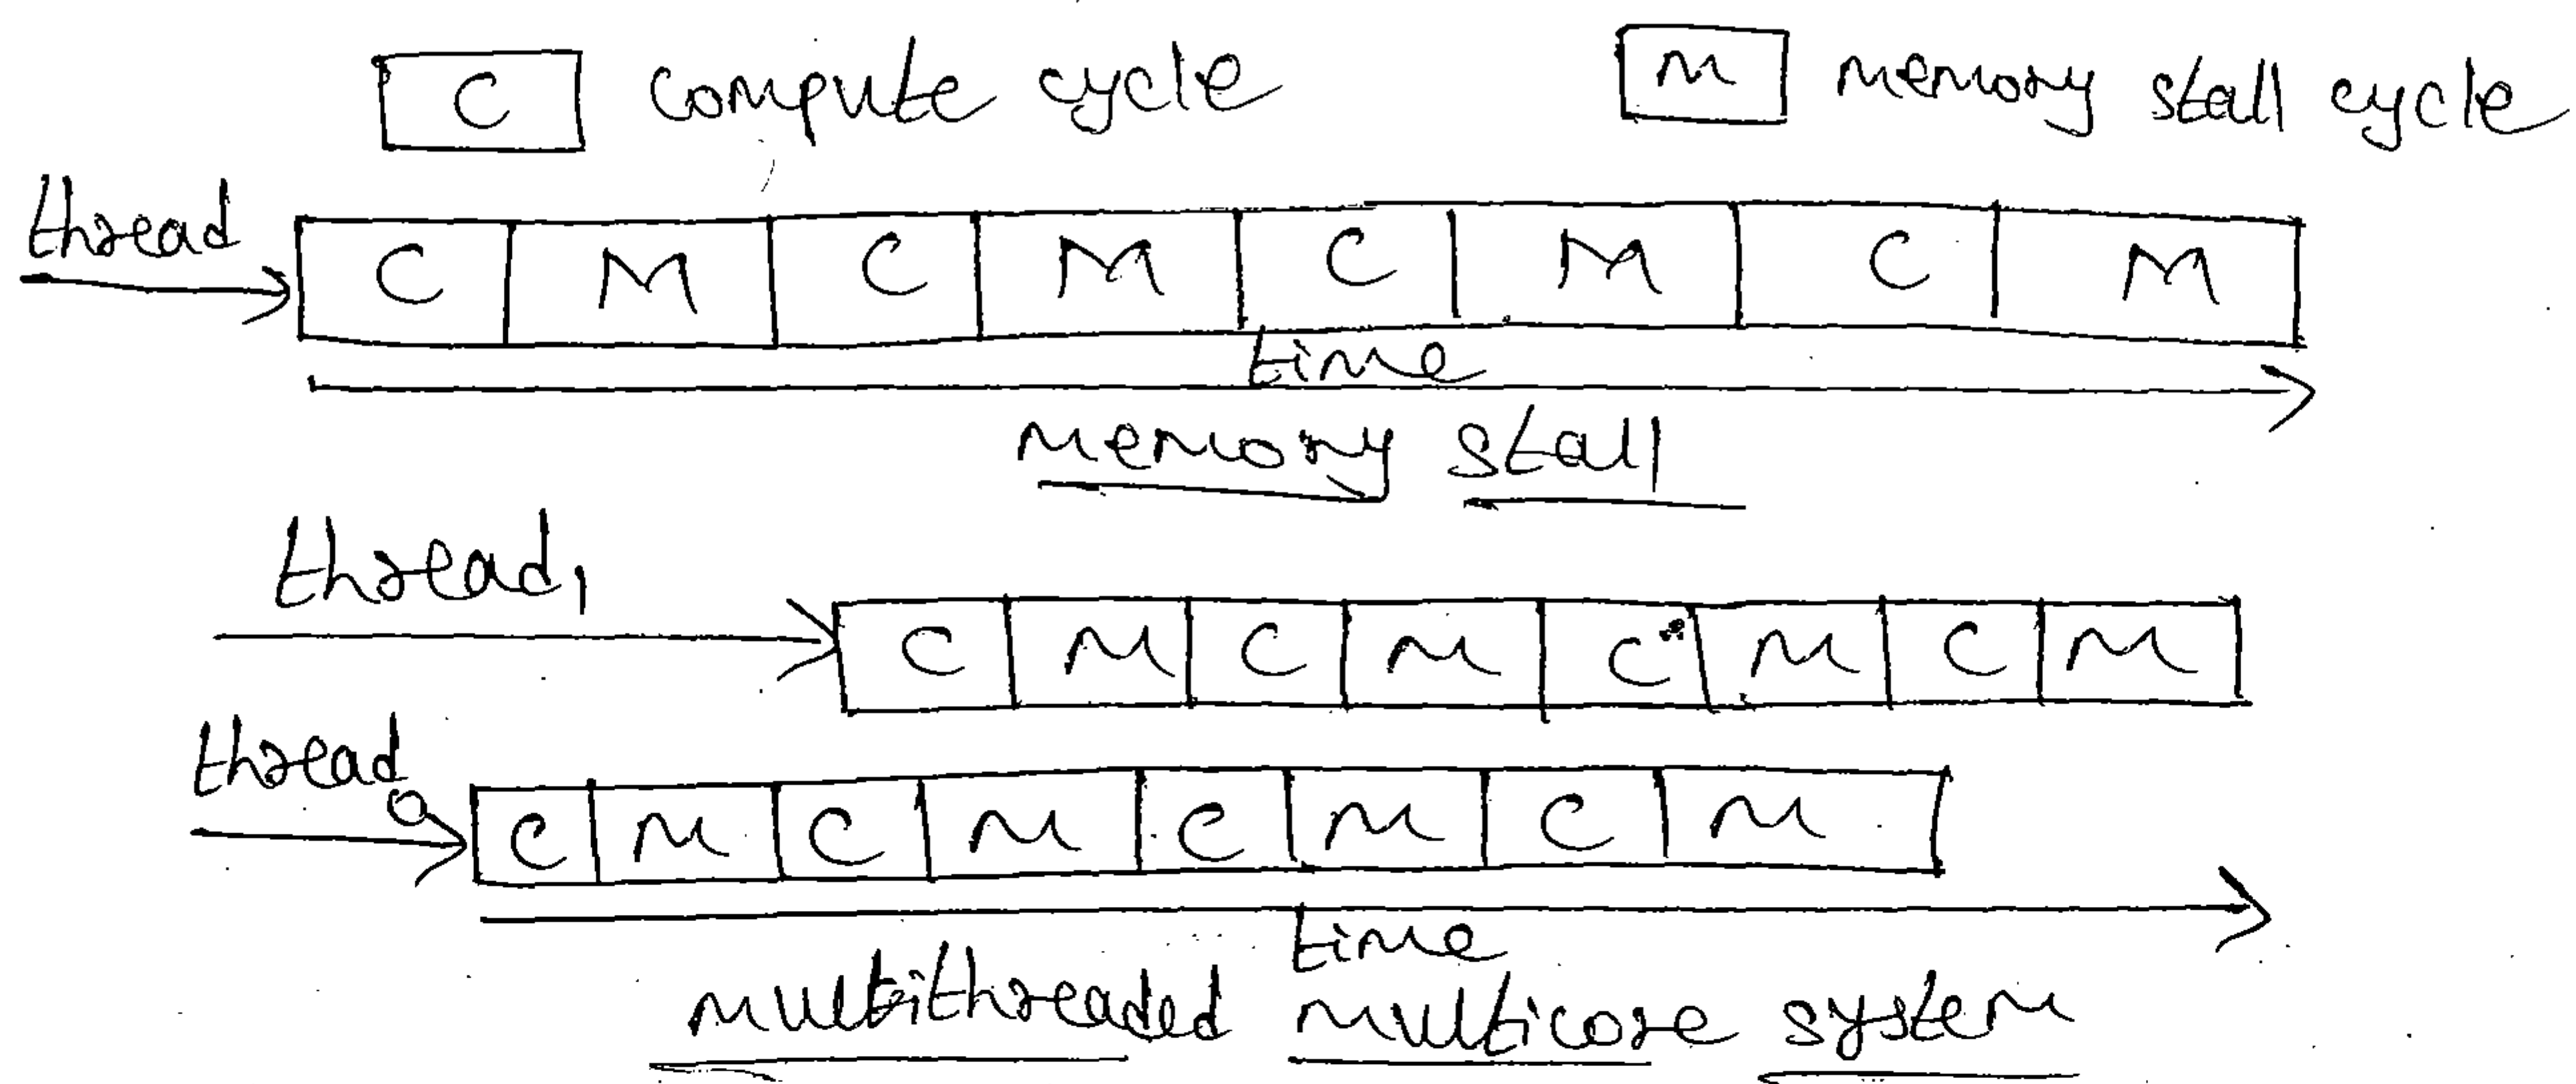 C compute cycle M memory stall cycle
thread
C M C M C M C M
time
memory stall
thread1
C M C M C M C M
thread0
C M C M C M C M
time
multithreaded multicore system